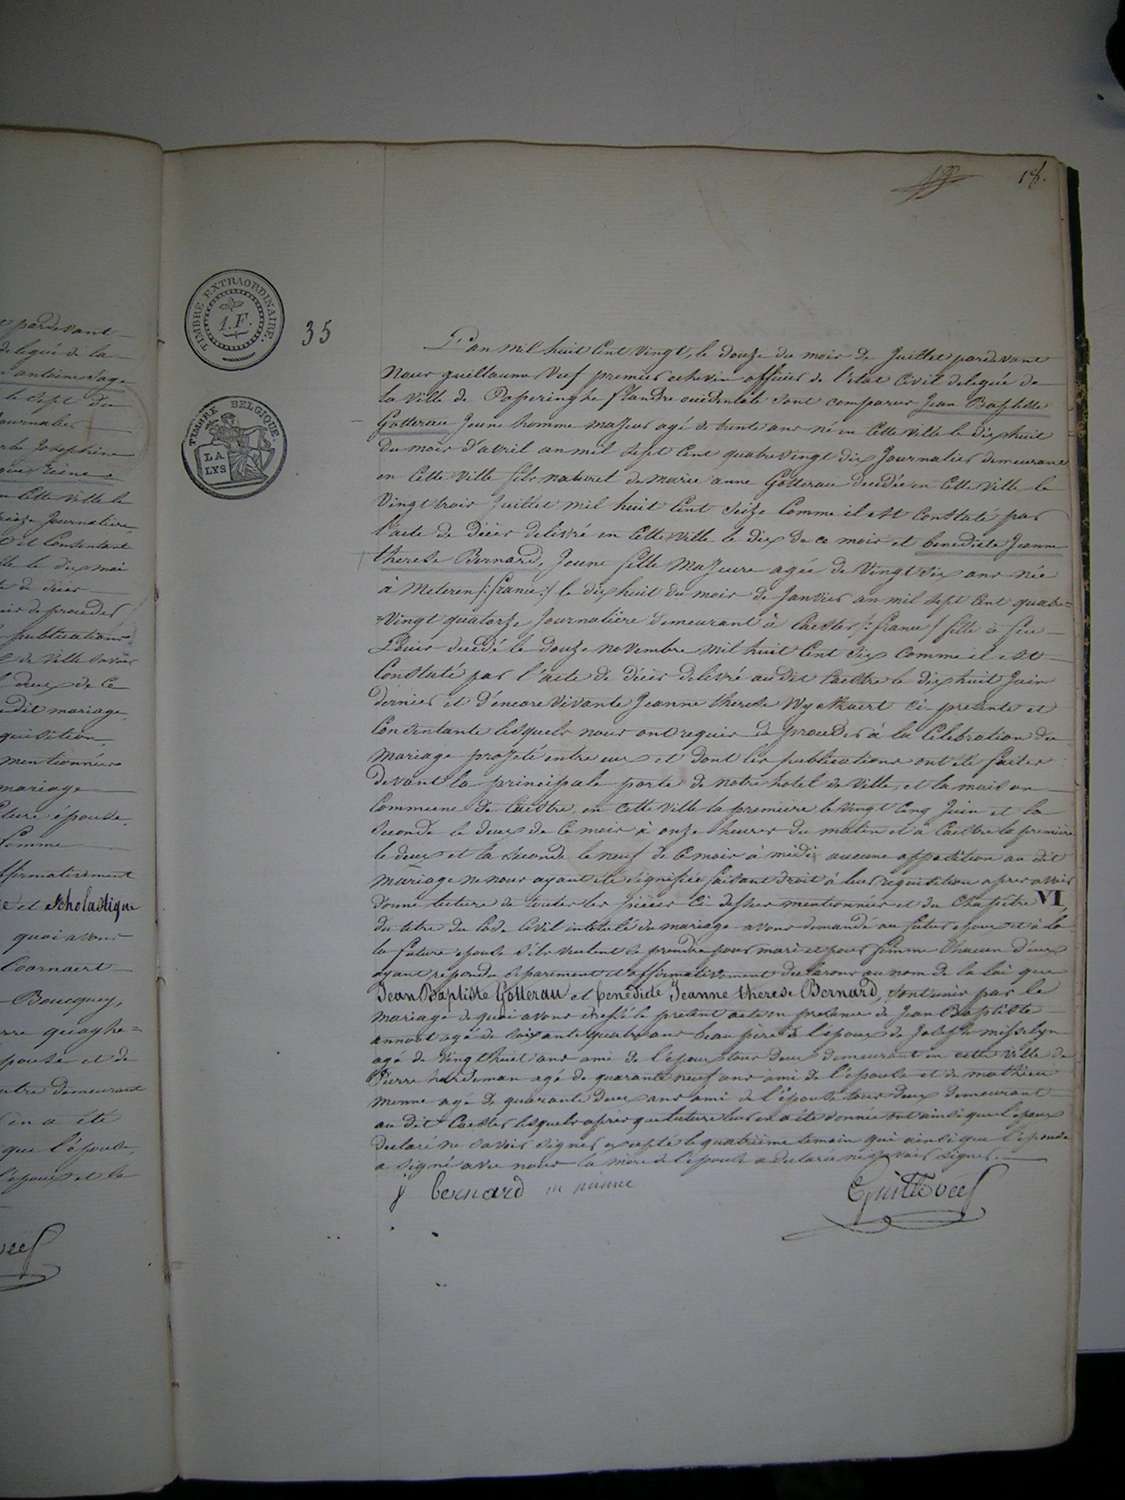 18.
TIMBRE EXTRAORDINAIRE.
1.F.
35
TIMBRE BELGIQUE.
LA
LYS
L'an mil huit Cent Vingt, le douze du mois de Juillet pardevant
Nous guillaume Veef premier echevin officier de l'etat Civil delegué de
la Ville de Poperinghe flandre occidentale sont comparus Jean Baptiste
Gotterau Jeune homme majeur agé de trente ans né en Cette ville le dix huit
du mois d'avril an mil sept Cent quatre vingt dix Journalier demeurant
en Cette Ville fils naturel de marie anne Gotterau decedée en Cette Ville le
Vingt trois Juillet mil huit Cent Seize Comme il est Constaté par
l'acte de décès delivré en Cette Ville le dix de ce mois et benedicte Jeanne
therese Bernard, Jeune fille majeure agée de Vingt Six ans née
à Meteren /:france:/ le dix huit du mois de Janvier an mil Sept Cent quatre=
=Vingt quatorze Journalière demeurant à Caester /:france:/ fille à feu
Louis decedé le douze novembre mil huit Cent dix Comme il est
Constaté par l'acte de décès delivré au dit Caestre le dix huit Juin
dernier et d'encore vivante Jeanne therese Wyckaert ci presente et
Consentante lesquels nous ont requis de proceder à la Celebration du
mariage projeté entre eux et dont les publications ont été faites
devant la principale porte de notre hotel de Ville, et la maison
Commune de Caestre, en Cette Ville la premiere le vingt Cinq Juin et la
Seconde le deux de Ce mois à onze heures du matin et à Caestre la premiere
le deux et la Seconde le neuf de Ce mois à midi, aucune opposition au dit
mariage ne nous ayant été Signifiée faisant droit à leur requisition apres avoir
donné lecture de toutes les pièces Ci dessus mentionnées et du Chapitre VI
du titre du Code Civil intitulé du mariage avons demandé au futur epoux et à la
la future epouse S'ils veulent Se prendre pour mari et pour femme Chacun d'eux
ayant repondu Separement et affirmativement declarons au nom de la Loi que
Jean Baptiste Gotterau et benedicte Jeanne therese Bernard, Sont unis par le
mariage de quoi avons dressé le present acte en presence de Jean Baptiste
annoot agé de Soixante quatre ans beau père de l'epoux de Joseph misselyn
agé de Vingt huit ans ami de l'epoux tous deux demeurant en cette Ville de
Pierre hardeman agé de quarante neuf ans ami de l'épouse et de mathieu
menne agé de quarante deux ans ami de l'épouse tous deux demeurant
au dit Caester lesquels après que lecture leur en a été donnée ont ainsi que l'epoux
declaré ne Savoir Signer excepté le quatrième temoin qui ainsi que l'epouse
a Signé avec nous la mère de l'epouse a declaré ne Savoir Signer.
j bernard m menne
Guill Veef
pardevant
delegué de la
antoine
le Sept du
Journalier
Josephine
en Cette Ville le
Journaliere
et Consentant
le dix mai
de décès
de proceder
publications
de Ville Savoir
deux de Ce
dit mariage
quisition
mentionnées
mariage
future épouse
femme
affirmativement
et Scholastique
quoi avons
Coornaert
Boucquey,
epouse et de
demeurant
en a été
que l'épouse,
l'epoux et le